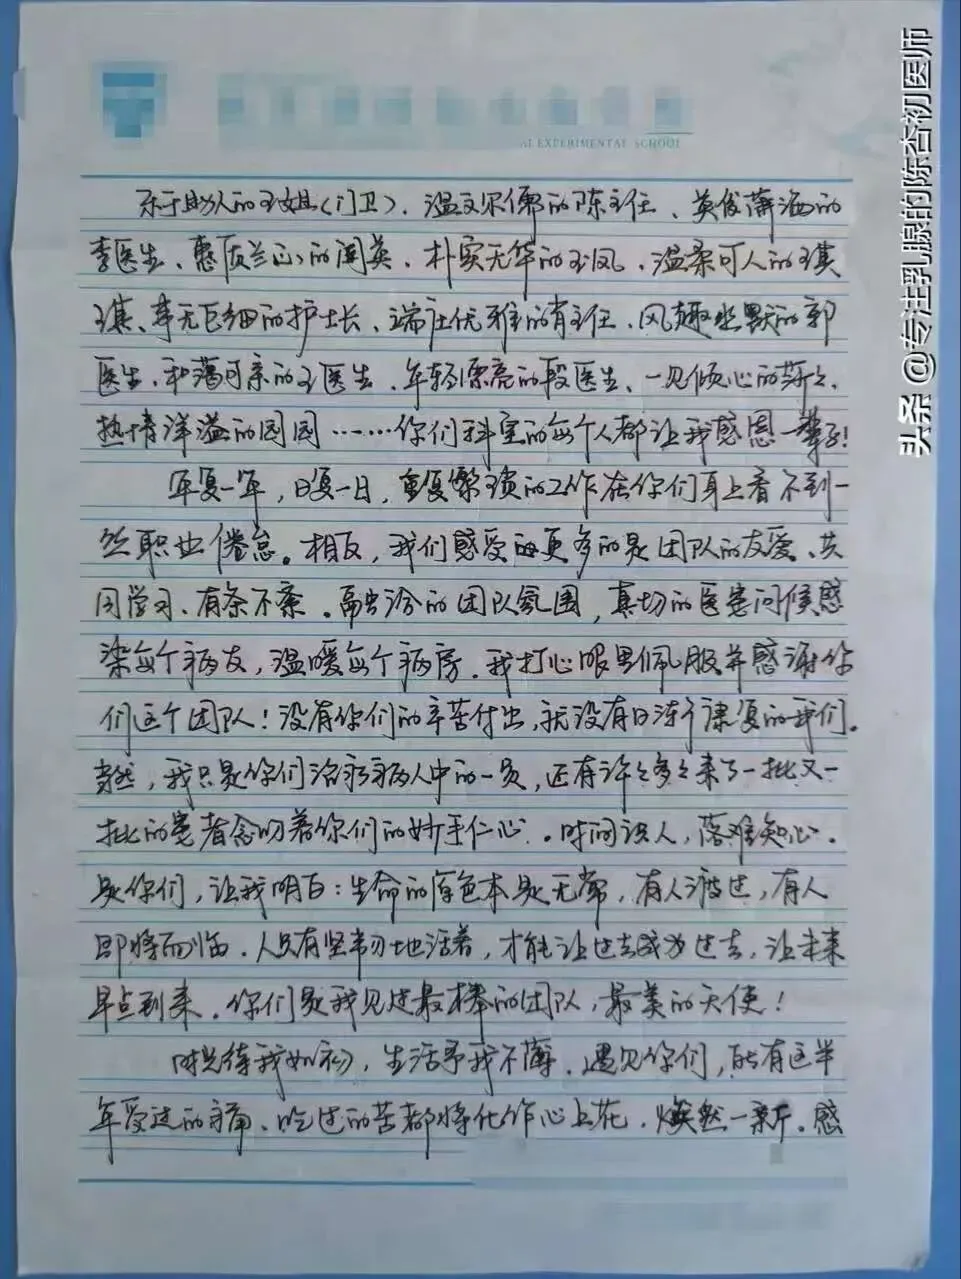 AI EXPERIMENTAL SCHOOL
乐于助人的王姐(门卫)、温文尔儒的陈主任、英俊潇洒的
李医生、惠质兰心的闺英、朴实无华的玉凤、温柔可人的琪
琪、事无巨细的护士长、端庄优雅的肖主任、风趣幽默的郭
医生、和蔼可亲的王医生、年轻漂亮的段医生、一见倾心的莎莎、
热情洋溢的园园……你们科室的每个人都让我感恩一辈子!
年复一年,日复一日,重复繁琐的工作在你们身上看不到一
丝职业倦怠。相反,我们感受的更多的是团队的友爱、共
同学习、有条不紊。而出诊的团队氛围,真切的医患问候感
染每个病友,温暖每个病房。我打心眼里佩服并感谢你
们这个团队!没有你们的辛苦付出,就没有日渐康复的我们。
当然,我只是你们治病人中的一员,还有许许多多来了一批又一
批的患者念叨着你们的妙手仁心。时间识人,落难知心。
是你们,让我明白:生命的底色本是无常,有人渡过,有人
即将面临。人只有坚韧地活着,才能让过去成为过去,让未来
早点到来。你们是我见过最棒的团队,最美的天使!
时光待我如初,生活予我不薄。遇见你们,所有这半
年受过的痛、吃过的苦都将化作心上花,焕然一新。感
头条 @专注乳腺的陈杏初医师